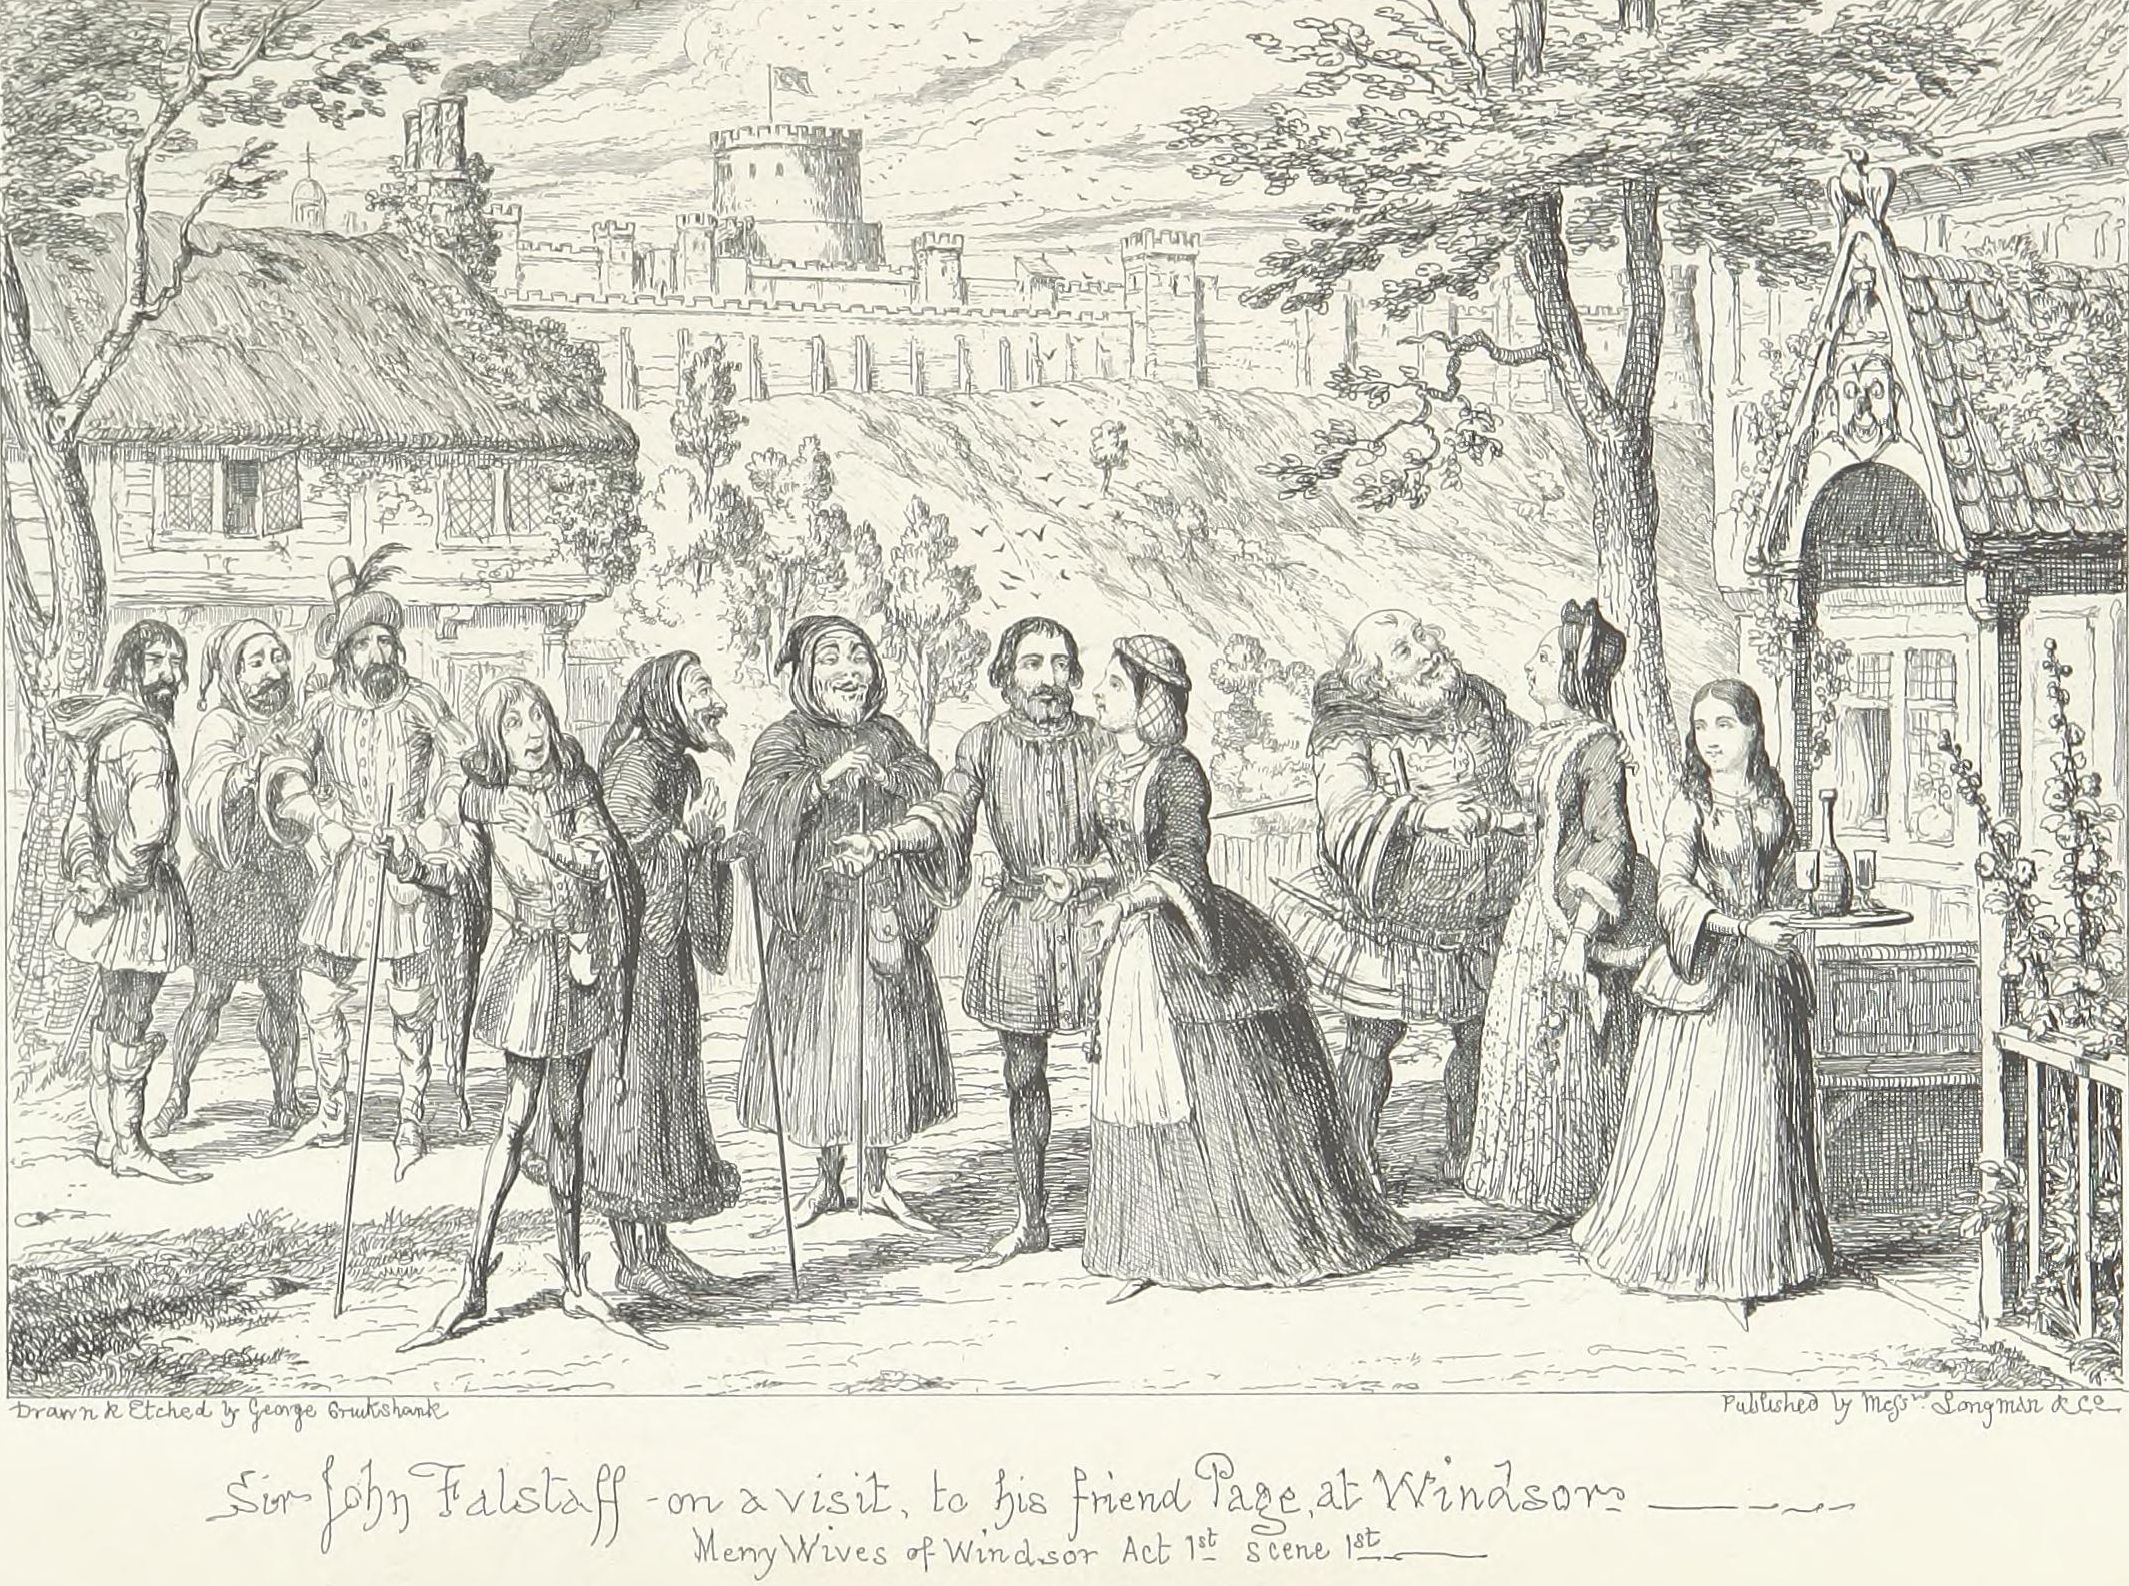 Drawn & Etched by George Cruikshank
Published by Messrs. Longman & Co
Sir John Falstaff - on a visit, to his friend Page, at Windsor
Merry Wives of Windsor Act 1st scene 1st